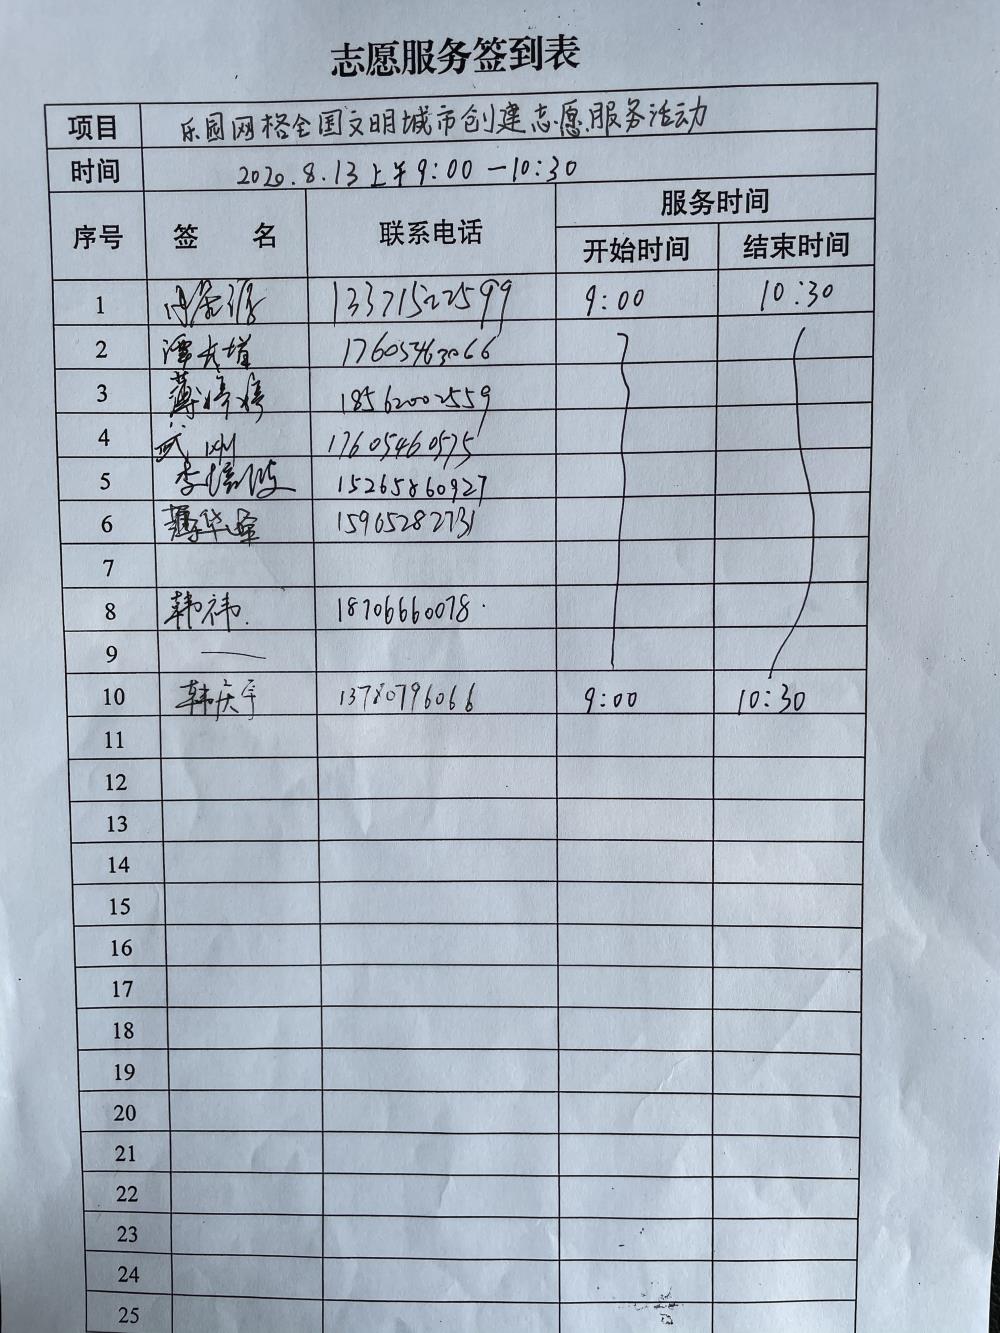 志愿服务签到表
项目 乐园网格全国文明城市创建志愿服务活动
时间 2020.8.13上午9:00—10:30
序号 签 名 联系电话 服务时间
开始时间 结束时间
1 13371522599 9:00 10:30
2 17605463066
3 薄婷婷 18562002559
4 武刚 17605460575
5 李 15265860927
6 薄华 15965282731
7
8 韩祎 18706660078
9 —
10 韩庆宇 13780796066 9:00 10:30
11
12
13
14
15
16
17
18
19
20
21
22
23
24
25